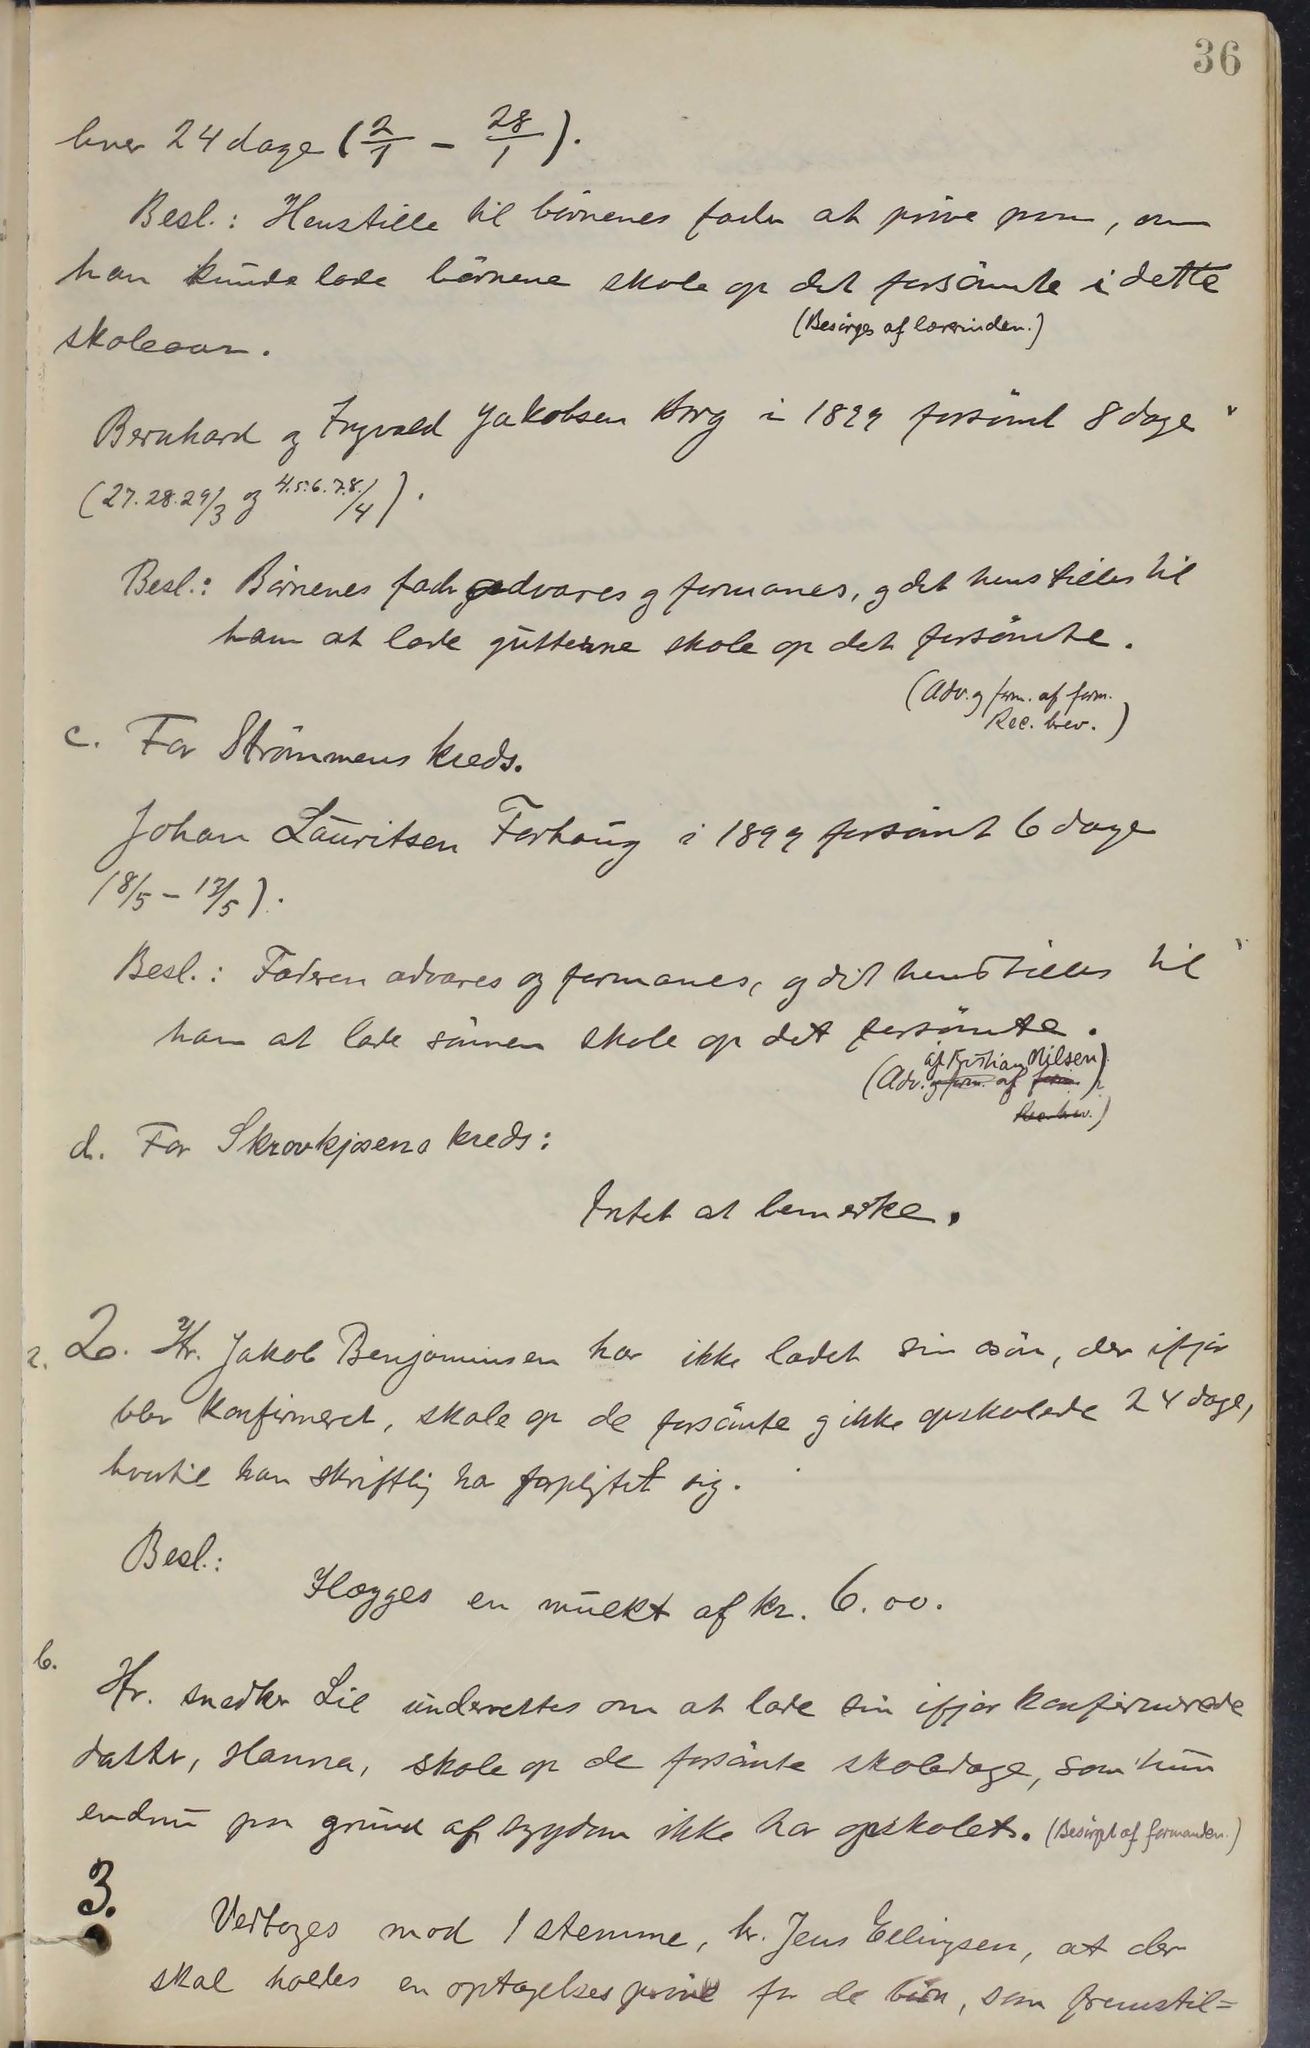 36
hver 24 dage (2/1 – 28/1).
Besl.: Henstille til börnenes fader at pröve paa, om
han kunde lade börnene skole op det forsömte i dette
(Besörges af lærerinden.)
skoleaar.
Bernhard og Ingvald Jakobsen Borg i 1899 forsömt 8 dage
(27.28.29/3 og 4.5.6.7.8./4).
Besl.: Börnenes fader advares og formanes, og det henstilles til
ham at lade gutterne skole op det forsömte.
(Adv. og form. af form.
Rec. brev.)
c. For Strömmens kreds.
Johan Lauritsen Forhaug i 1899 forsömt 6 dage
(8/5 – 13/5).
Besl.: Faderen advares og formanes, og det henstilles til
ham at lade sönnen skole op det forsömte.
af Kristian Nilsen)
(Adv. og form. af form.)
Rec. brev.)
d. For Skrovkjosens kreds:
Intet at bemerke.
a. 2. Hr. Jakob Benjaminsen har ikke ladet sin sön, der ifjor
blev konfirmeret, skole op de forsömte og ikke opskolede 24 dage,
hvortil han skriftlig har forpligtet sig.
Besl.:
Ilægges en mulkt af kr. 6.00.
b.
Hr. snedker Lie underrettes om at lade sin ifjor konfirmerede
datter, Hanna, skole op de forsömte skoledage, som hun
endnu paa grund af sygdom ikke har opskolet. (Besörget af formanden.)
3.
Vedtoges mod 1 stemme, hr. Jens Ellingsen, at der
skal holdes en optagelsespröve for de börn, som fremstil=